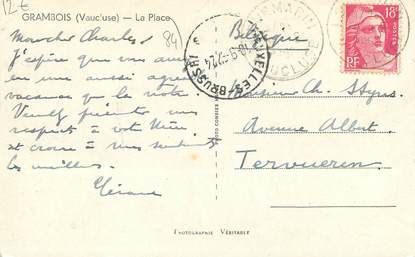 12€
GRAMBOIS (Vauc'use) — La Place
84
Mon cher Charles
J'espère que vous avez
eu une aussi agréable
vacances que la notre
Veuillez présenter mes
respects à votre Mère
et croire à mes sentiments
les meilleurs.
Belgique
Monsieur Ch. Styns
Avenue Albert
Tervueren
VAUCLUSE
BRUXELLES-BRUSSEL
18F
POSTES
RF
PHOTOGRAPHIE VÉRITABLE